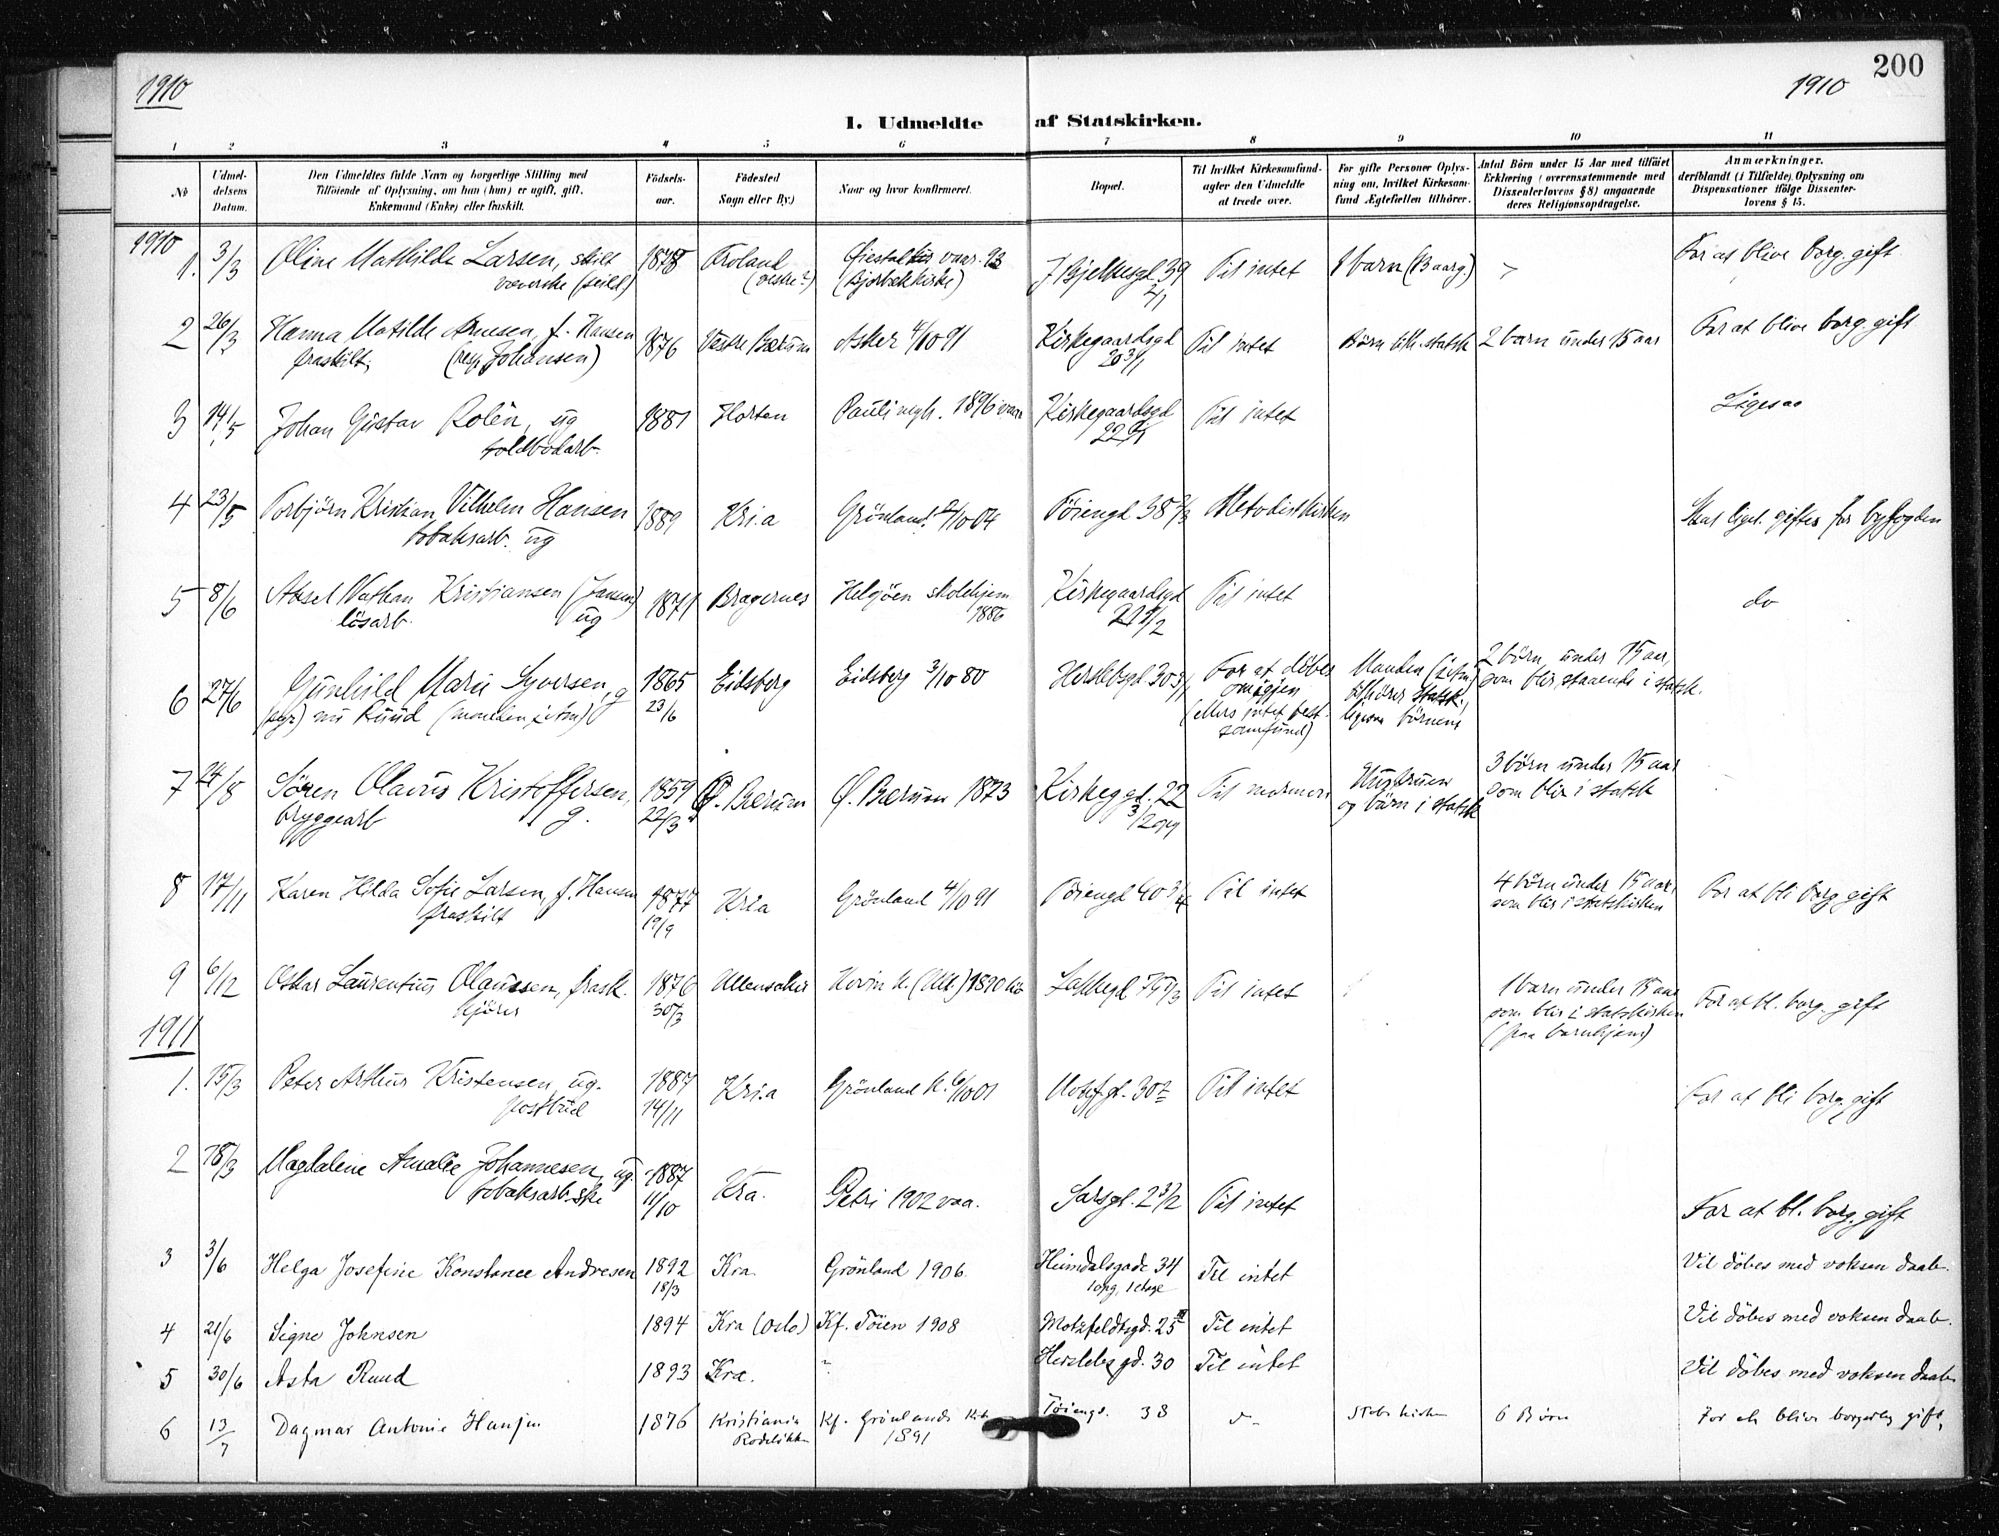 200
1910
1910
1. Udmeldte af Statskirken.
1 2 3 4 5 6 7 8 9 10 11
No
Udmeldelsens Datum.
Den Udmeldtes fulde Navn og borgerlige Stilling med
Tilföiende af Oplysning, om han (hun) er ugift, gift,
Enkemand (Enke) eller fraskilt.
Födselsaar.
Födested
Sogn eller By.)
Naar og hvor konfirmeret.
Bopæl.
Til hvilket Kirkesamfundagter den Udmeldte
at træde over.
For gifte Personer Oplysning om, hvilket Kirkesamfund Ægtefællen tilhörer.
Antal Börn under 15 Aar med tilföiet
Erklæring (overensstemmende med
Dissenterlovens § 8) angaaende
deres Religionsopdragelse.
Anmærkninger.
deriblandt (i Tilfælde) Oplysning om
Dispensationer ifölge Dissenterlovens § 15.
1910
1. 3/3 Oline Mathilde Larsen, skilt 1878 Froland 1 barn (13 aarg.) For at blive borg. gift
væverske (seild) (vestre?) (Bjorbækkirke) Til intet
2 26/3 Hanna Matilde Arnesen, f. Hansen 1876 Vestre Bærum Asker 4/10 91 Kirkegaardsgd Til intet 2 barn under 15 aar For at blive borg. gift
fraskilt, Johansen) 20 3/1
3 14/5 Johan Gustav Rolén, ug 1881 Horten 1896 vaar Kirkegaardsgd Til intet Ligesaa
toldbodarb. 22
4 23/5 Torbjörn Kristian Vilhelm Hansen 1889 Kria Grönland 2/10 04 Töiengd 38 Metodistkirken Skal giftes for byfogden
tobaksarb. ug
5 8/6 Aksel Nathan Kristiansen (Jansen) 1871 Bragernes Helgöen skolehjem Kirkegaardsgd Til intet do
lösarb. ug 1886
6 27/6 Gunhild Marie Syversen, g 1865 Eidsberg Eidsberg 3/10 80 Herslebgd. 30 For at döbes Manden 2 börn under 15 aar,
Ruud (manden 23/6 omigjen tilhörer statsk. som blir staaende i statsk.
(ellers intet best. ligesom börnene
samfund)
7 24/8 Sören Olavus Kristoffersen, 1859 Ø. Bærum Ø. Bærum 1873 Kirkeggd. 22 Til mormon Hustruen 3 börn under 15 aar
bryggearb g. 22/3 og börn i statsk som blir i statsk
8 17/11 Karen Hilda Sofie Larsen, f. Hansen 1877 Kria Grönland 4/10 91 Töiengd 40 3/4 Til intet 4 börn under 15 aar, For at bli borg gift
fraskilt 19/9 som blir i statskirken
9 6/12 Oskar Laurentius Olaussen, frask. 1876 Ullensaker Hovin k. (Ull.) 1890 Lakkegd Til intet 1 barn under 15 aar For at bl. borg. gift
kjörer 30/3 som blir i statskirken
(paa barnehjem)
1911
1. 15/3 Peter Arthur Kristensen, ug. 1887 Kria Grönland k. 6/10 01 Motzf.gd. 30 Til intet For at bli borg. gift
postbud 14/11
2 18/3 Magdalene Amalie Johannesen, ug. 1887 Kra. Petri 1902 vaa. Sarsgd. 2 3/2 Til intet For at bl. borg. gift
tobaksarb.ske 11/10
3 3/6 Helga Josefine Konstance Andresen 1892 Kra. Grönland 1906. Heimdalsgade 34 Til intet Vil döbes med voksen daab.
18/3 1 opg, 1 etage
4 21/6 Signe Johnsen 1894 Kra (Oslo) Kf. Töien 1908 Motzfeldtsgd. 25 III Til intet Vil döbes med voksen daab.
5 30/6 Asta Ruud 1893 Kra. " Herslebsgd. 30 Til intet Vil döbes med voksen daab.
6 13/7 Dagmar Antonie 1876 Kristiania Kf. Grönlands Kirke Töiengd. 38 Statskirken 6 Börn For at blive borgerlig gift.
1891